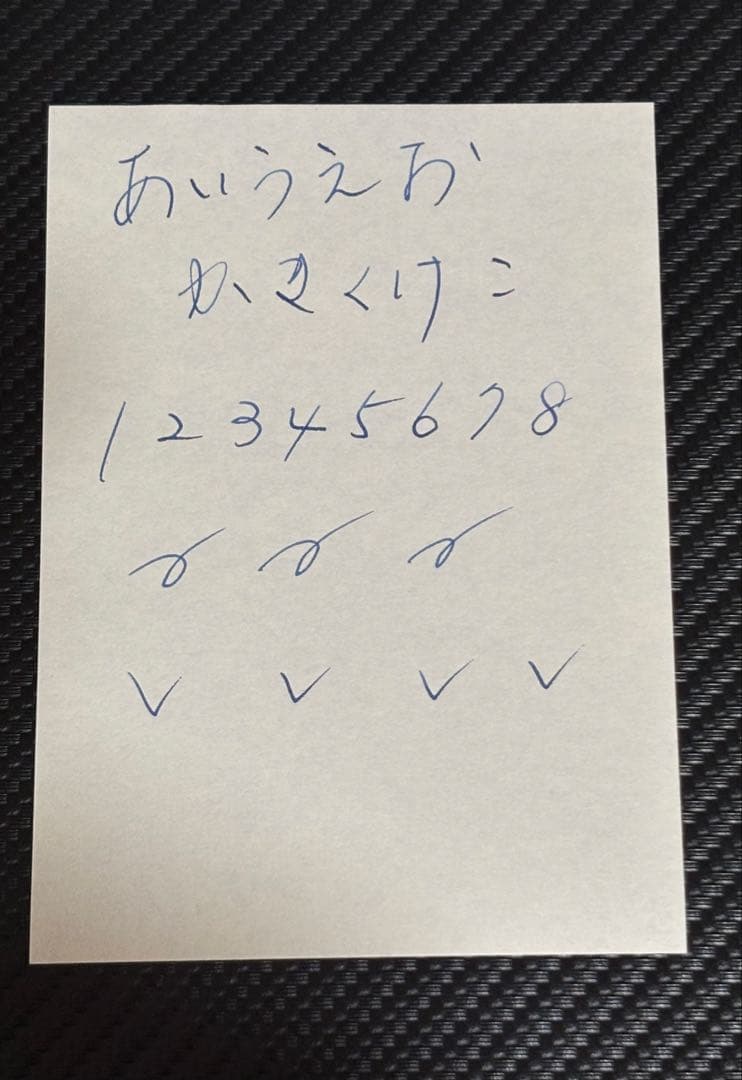 あいうえお
かきくけこ
1 2 3 4 5 6 7 8
✓ ✓ ✓ ✓